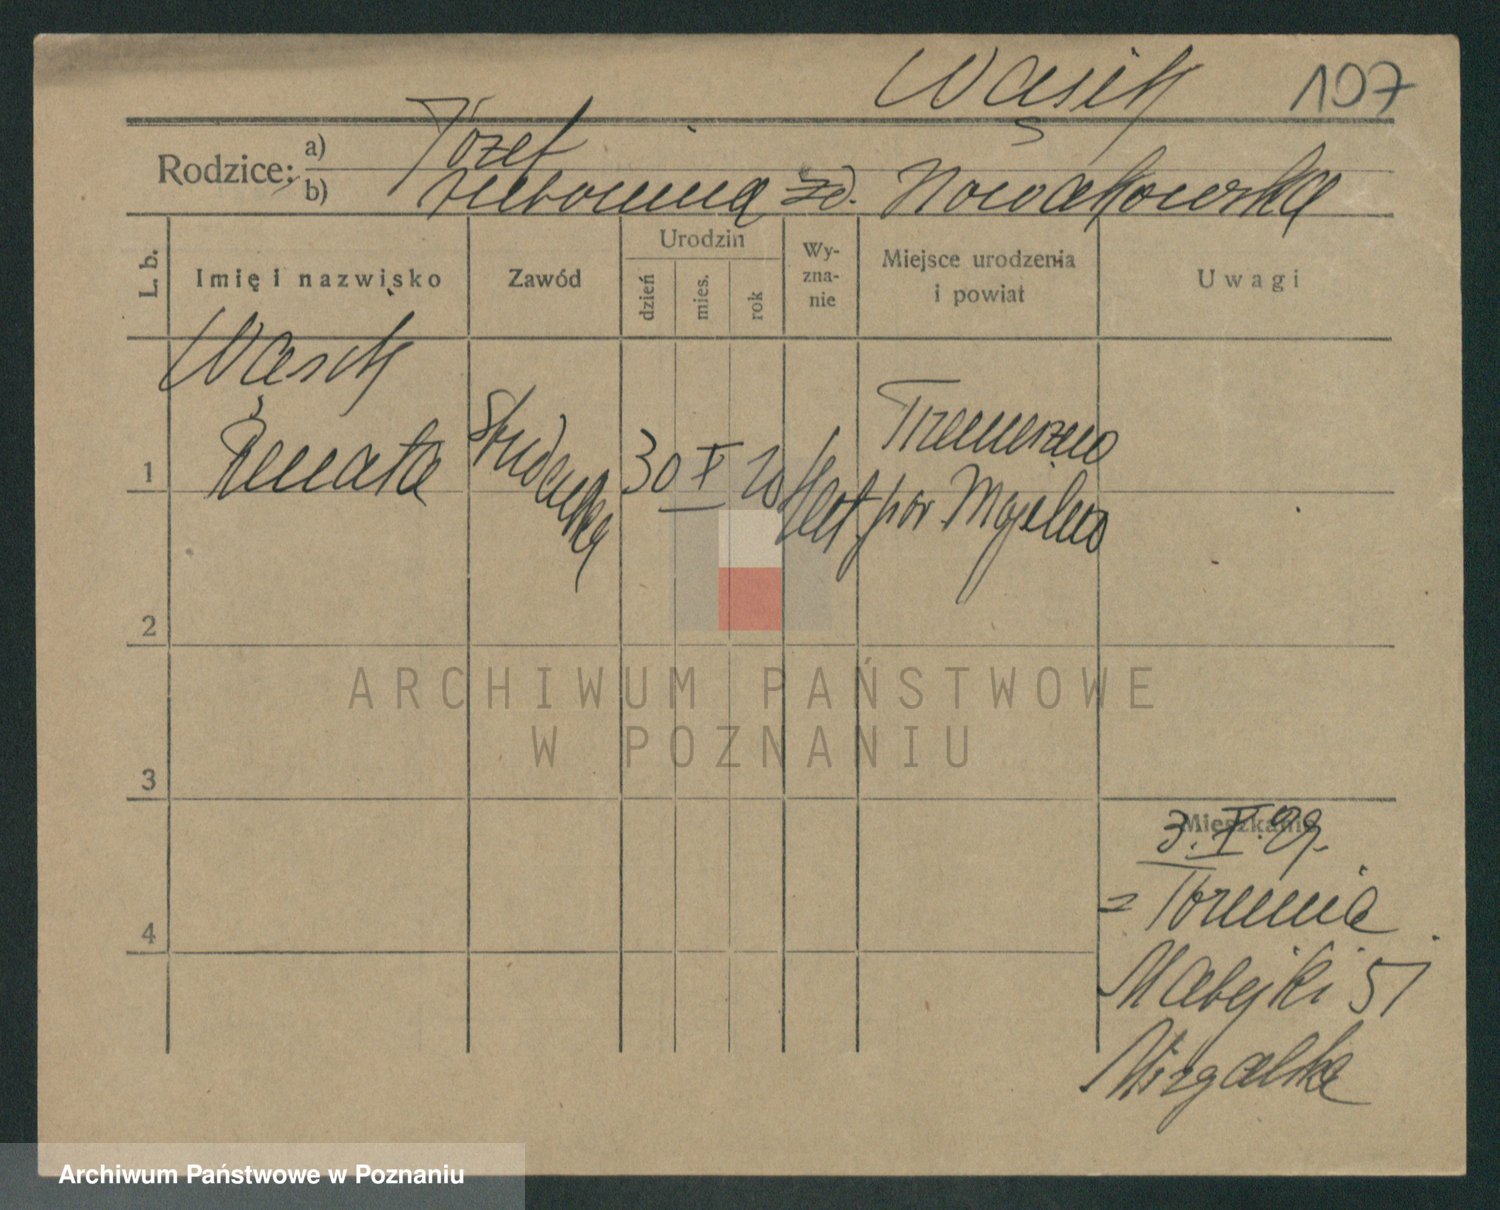 Wąsik 107
Rodzice:
a) Józef
b) zd. Nowakowska
L. b.
Imię i nazwisko
Zawód
Urodzin
dzień
mies.
rok
Wy-
zna-
nie
Miejsce urodzenia
i powiat
Uwagi
Wąsik
1 Renata
Studentka
30 V 20
Kat
Trzemeszno
pow Mogilno
2
3
4
Mieszkanie
3. X. 29.
z Torunia
Matejki 51
ARCHIWUM PAŃSTWOWE
W POZNANIU
Archiwum Państwowe w Poznaniu